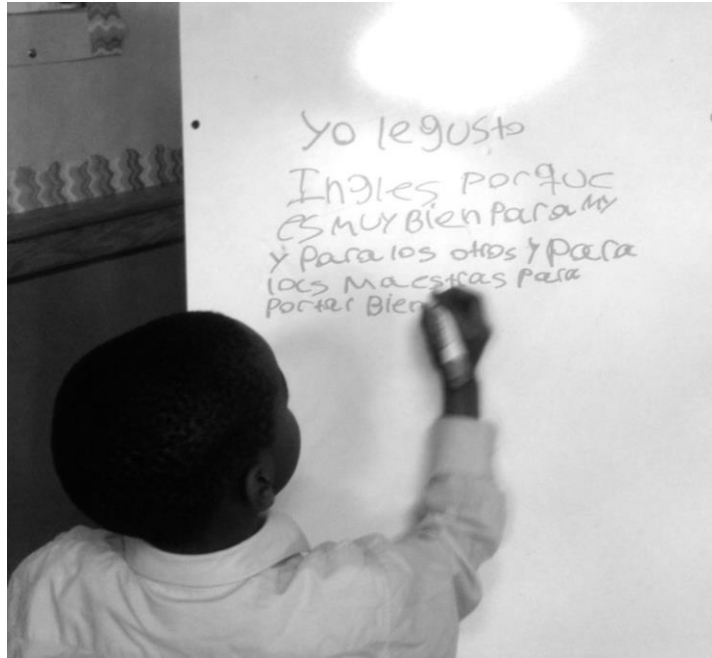 Yo le gusto
Ingles porque
es MUY Bien Para MY
y para los otros y para
locs Maestras para
Portar Bien